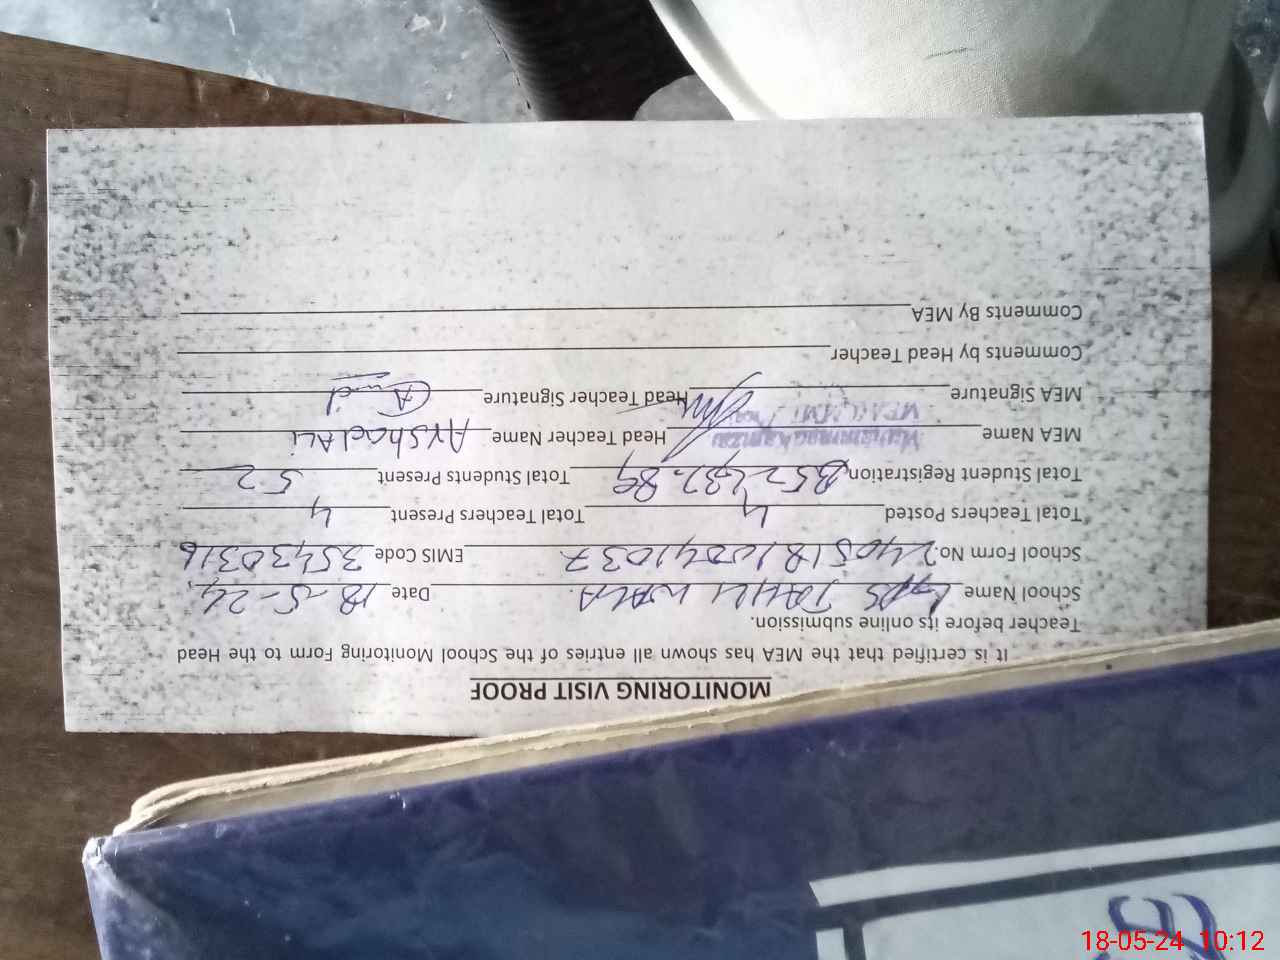 MONITORING VISIT PROOF
It is certified that the MEA has shown all entries of the School Monitoring Form to the Head
Teacher before its online submission.
School Name GPS TAHLI WALA. Date 18-5-24
School Form No. 240518100041037 EMIS Code 35430316
Total Teachers Posted 4 Total Teachers Present 4
Total Student Registration B52+G37=89 Total Students Present 52
MEA Name Muhammad Head Teacher Name ArshadALi
MEA Signature Head Teacher Signature
Comments by Head Teacher
Comments By MEA
18-05-24 10:12